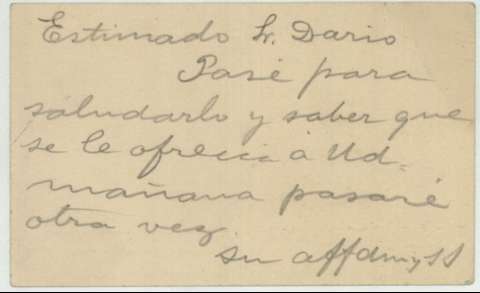 Estimado Sr. Dario
Pasé para
saludarlo y saber que
se le ofrecia á Ud.
mañana pasaré
otra vez.
su affdmo y SS